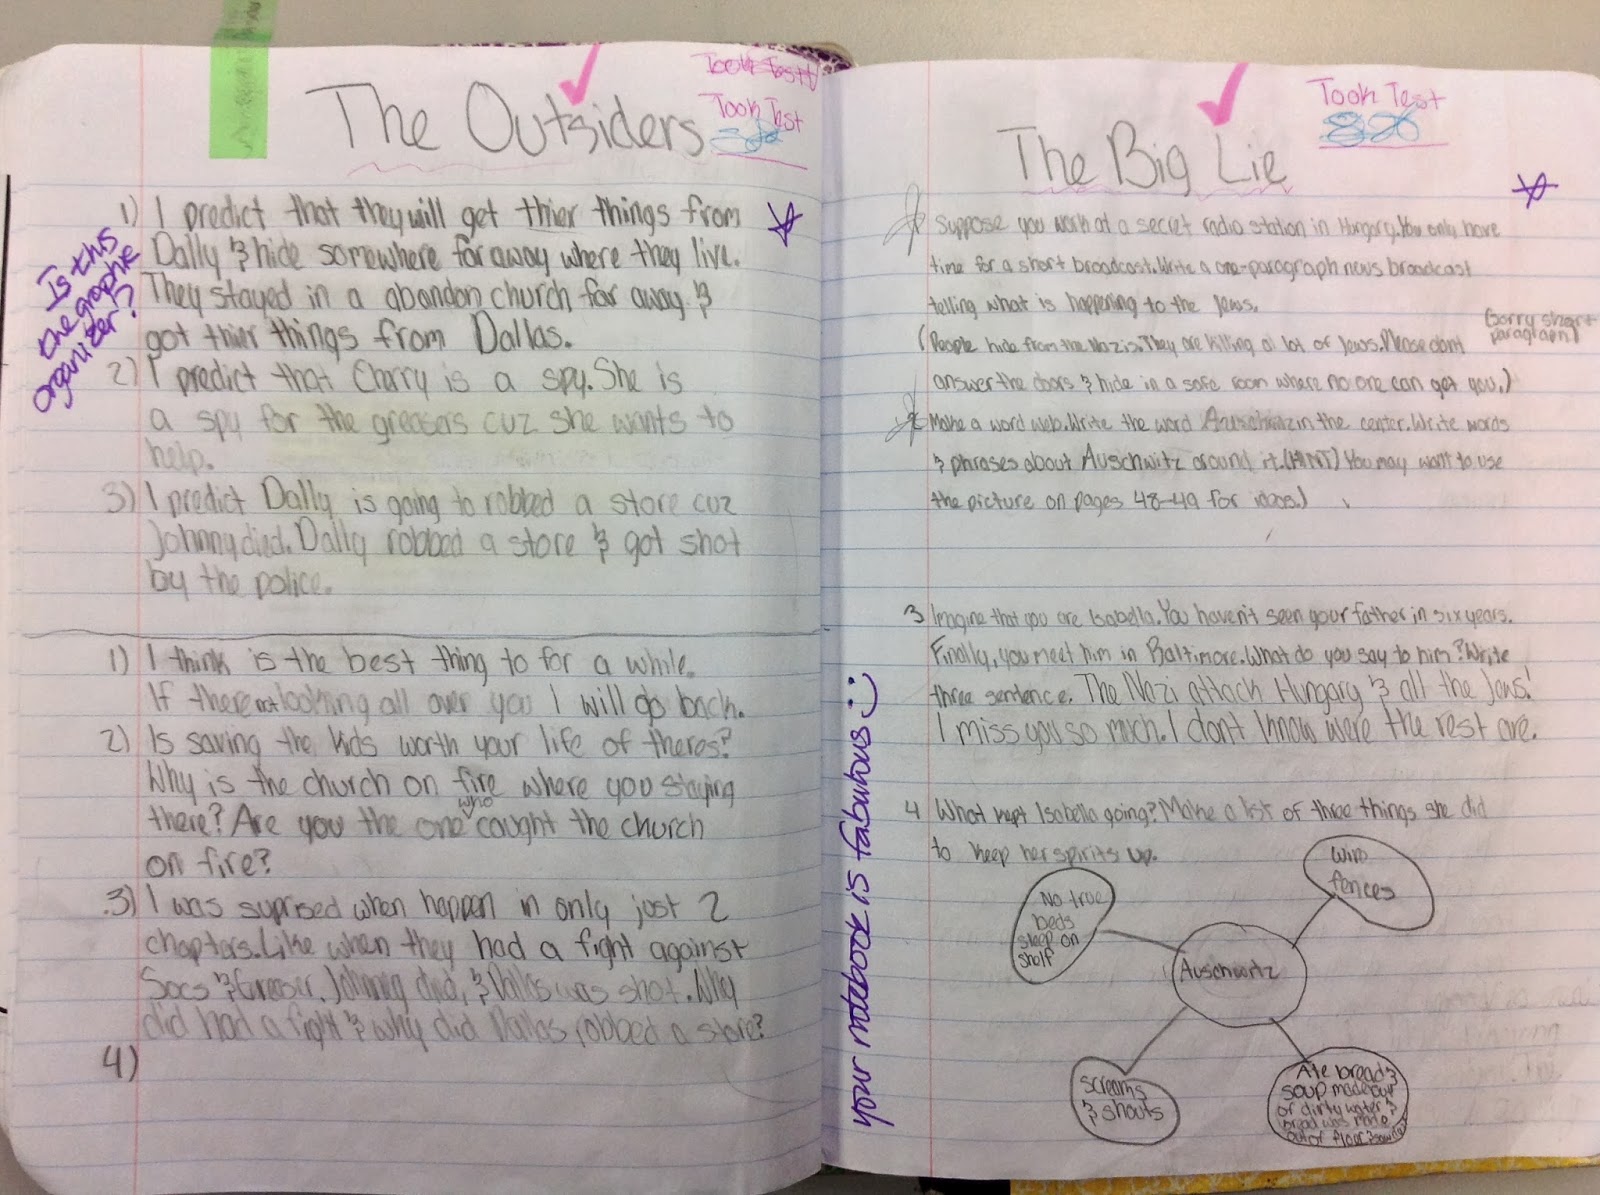 The Outsiders
Took Test
Took Test
Is this
the graphic
organizer!?
1) I predict that they will get thier things from
Dally & hide somewhere far away where they live.
They stayed in a abandon church far away &
got thier things from Dallas.
2) I predict that Cherry is a spy. She is
a spy for the greasers cuz she wants to
help.
3) I predict Dally is going to robbed a store cuz
Johnny died. Dally robbed a store & got shot
by the police.
1) I think is the best thing to for a while.
If there not looking all over you I will go back.
2) Is saving the kids worth your life of theres?
Why is the church on fire where you staying
there? Are you the one who caught the church
on fire?
3) I was suprised when happen in only just 2
chapters. Like when they had a fight against
Socs & Greaser, Johnny died, & Dallas was shot. Why
did had a fight & why did Dallas robbed a store?
4)
your notebook is fabulous :)
The Big Lie
Took Test
Suppose you work at a secret radio station in Hungary. You only have
time for a short broadcast. Write a one-paragraph news broadcast
telling what is happening to the Jews.
(Sorry short
paragraph)
(People hide from the Nazis. They are killing a lot of Jews. Please dont
answer the doors & hide in a safe room where no one can get you.)
Make a word web. Write the word in the center. Write words
& phrases about Auschwitz around it. (HINT) You may want to use
the picture on pages 48-49 for ideas.)
3 Imagine that you are Isabella. You haven't seen your father in six years.
Finally, you meet him in Baltimore. What do you say to him? Write
three sentence. The Nazi attack Hungary & all the Jews!
I miss you so much. I dont know were the rest are.
4 What kept Isabella going? Make a list of three things she did
to keep her spirits up.
No true
beds
sleep on
shelf
fences
Auschwitz
Screams
& shouts
Ate bread &
soup made out
of dirty water &
bread was made
out of